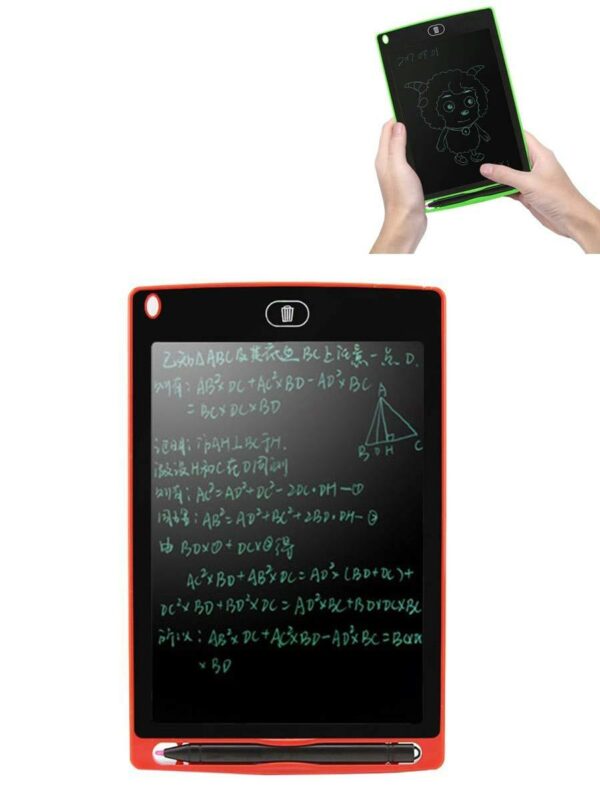 2017.03.01
已知△ABC及其底边BC上任意一点D.
则有: AB²×DC+AC²×BD-AD²×BC
=BC×DC×BD
A
B D H C
证明: 作AH⊥BC于H.
假设H和C在D同侧
则有: AC²=AD²+DC²-2DC·DH-①
同理: AB²=AD²+BC²+2BD·DH-②
由 BD×①+DC×②得
AC²×BD+AB²×DC=AD²×(BD+DC)+
DC²×BD+BD²×DC=AD²×BC+BD×DC×BC
所以: AB²×DC+AC²×BD-AD²×BC=BC×DC
×BD